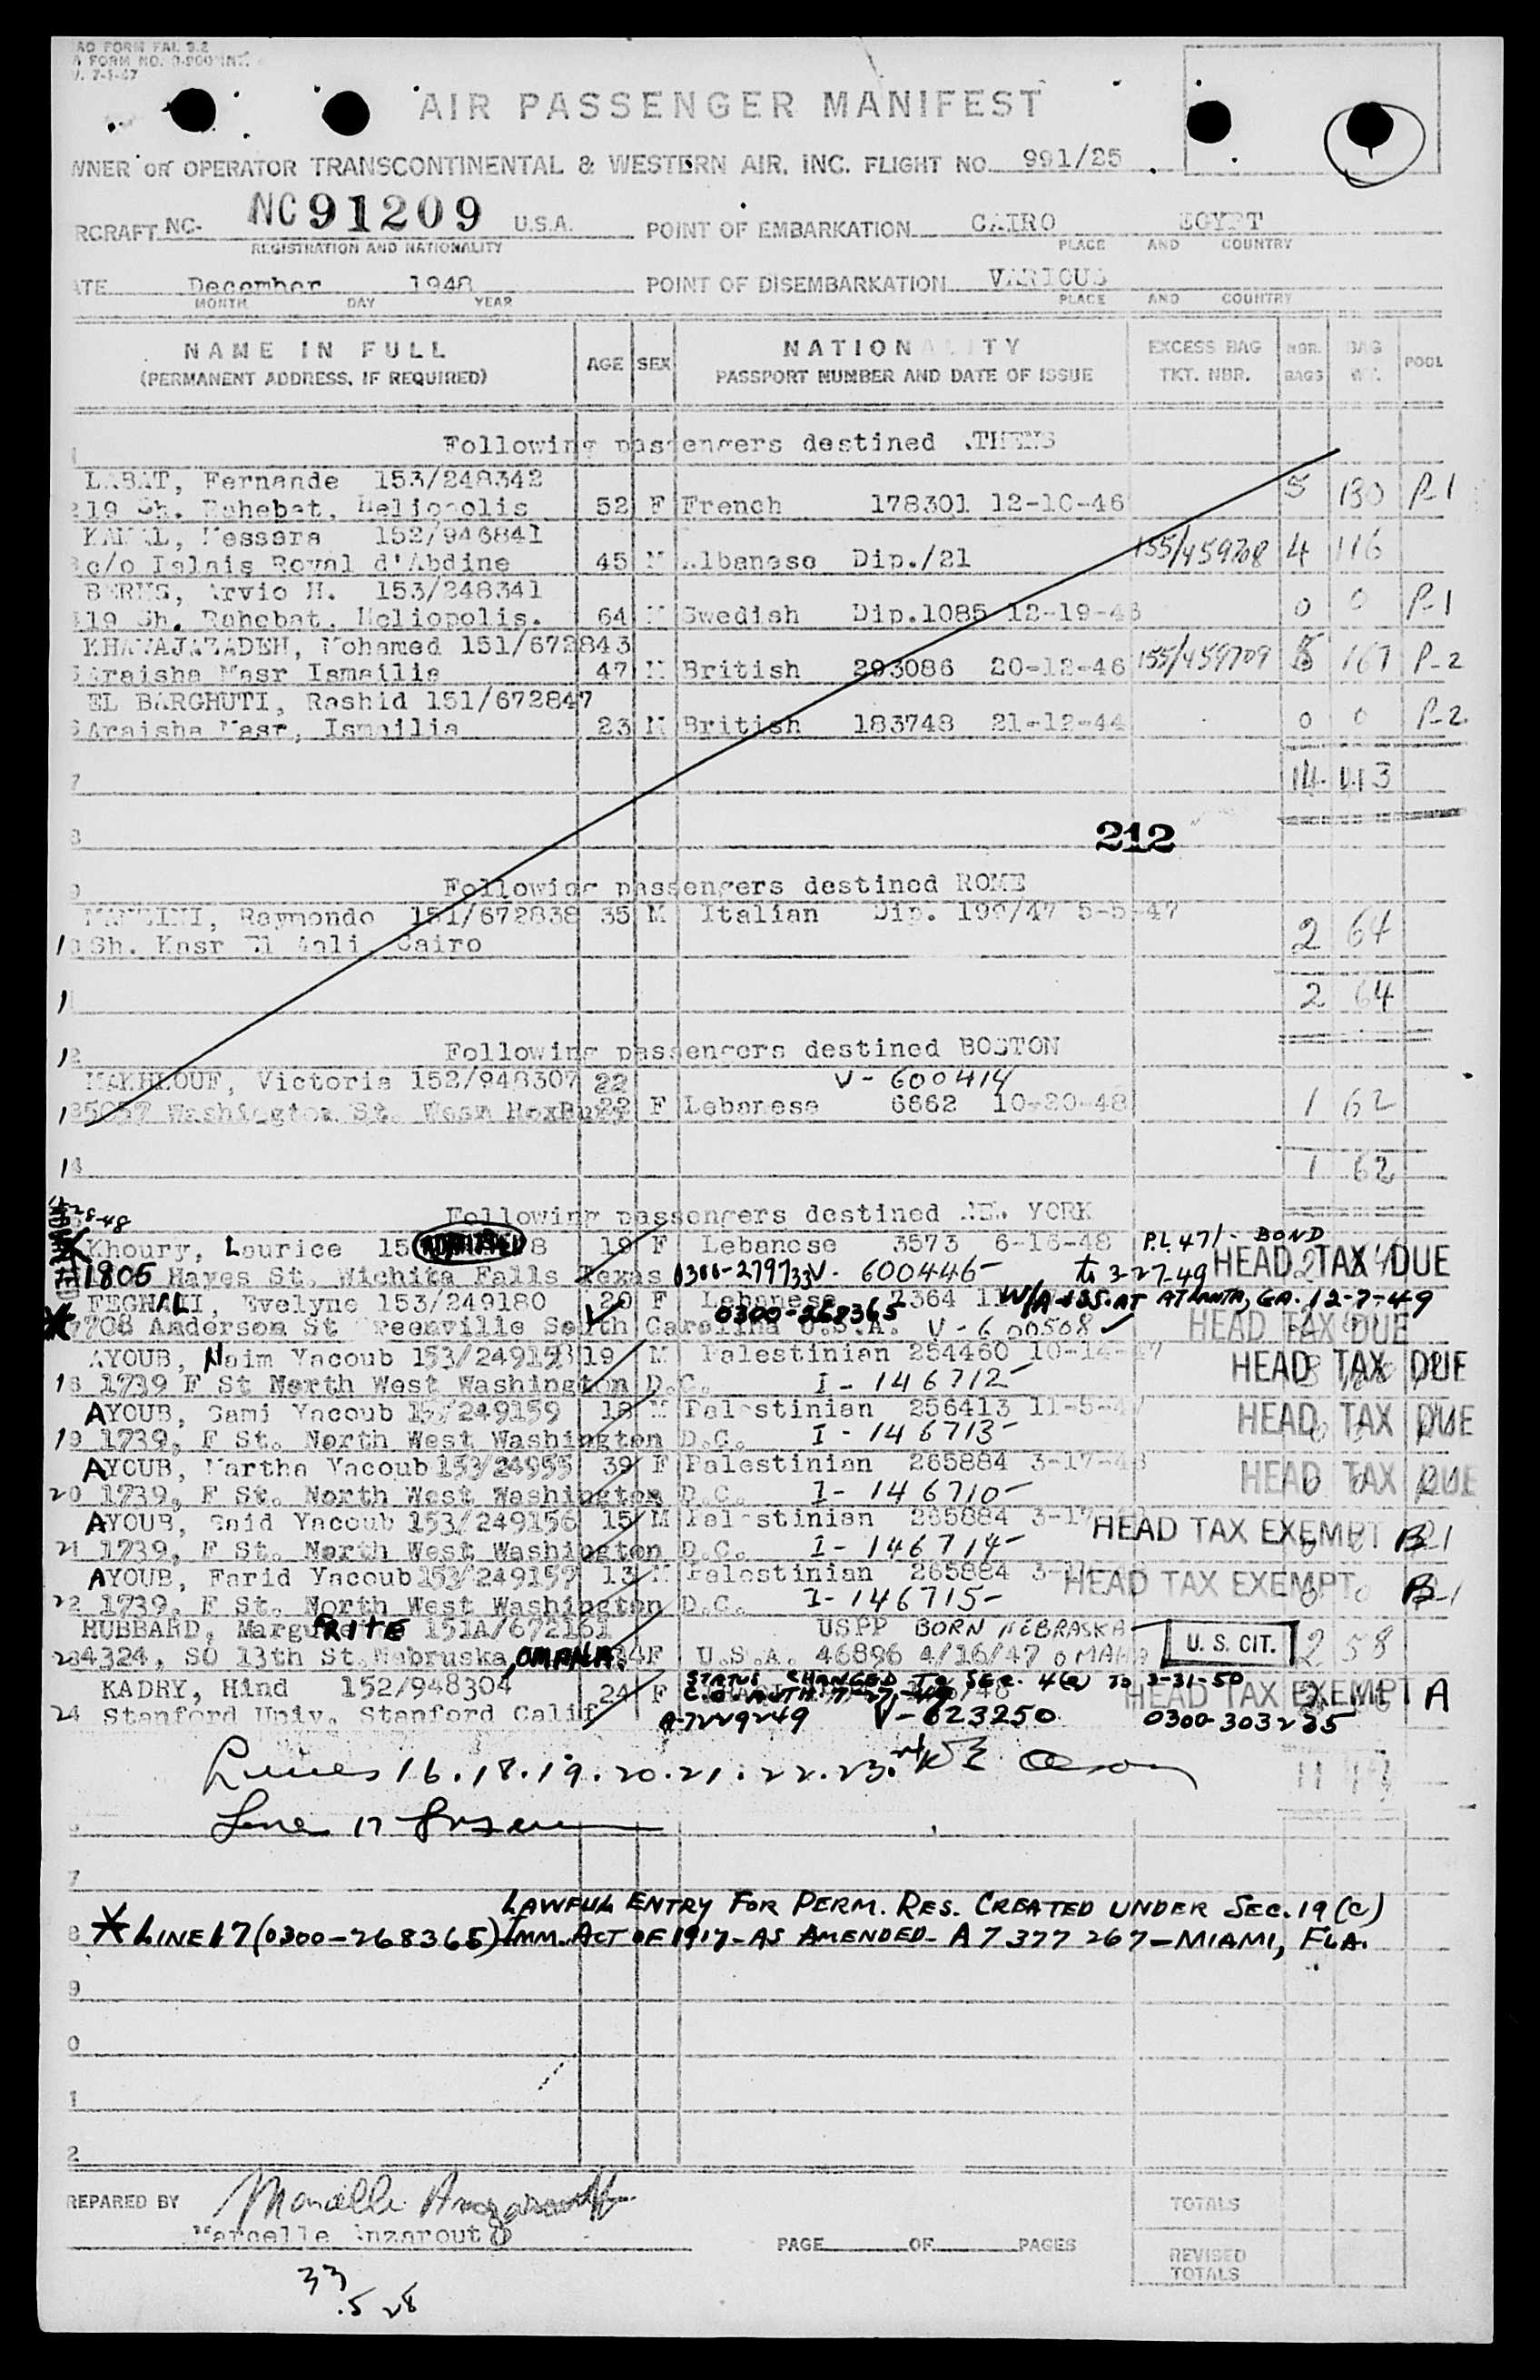 AD FORM FAL 3.2
FORM NO.
V. 7-1-47
AIR PASSENGER MANIFEST
WNER or OPERATOR TRANSCONTINENTAL & WESTERN AIR, INC. FLIGHT NO. 991/25
RCRAFT NC. NC91209 U.S.A. POINT OF EMBARKATION CAIRO EGYPT
REGISTRATION AND NATIONALITY PLACE AND COUNTRY
ATE December 1948 POINT OF DISEMBARKATION VARIOUS
MONTH DAY YEAR PLACE AND COUNTRY
NAME IN FULL AGE SEX NATIONALITY EXCESS BAG NBR. BAG POOL
(PERMANENT ADDRESS, IF REQUIRED) PASSPORT NUMBER AND DATE OF ISSUE TKT. NBR. BAGS WT.
Following passengers destined ATHENS
LABAT, Fernande 153/248342
219 Sh. Rahebat, Heliopolis 52 F French 178301 12-10-46 5 130 P-1
KAMAL, Messara 152/946841
c/o Palais Royal d'Abdine 45 M Albanese Dip./21 155/459708 4 116
BERNS, Arvio H. 153/248341
19 Sh. Rahebat, Heliopolis. 64 M Swedish Dip.1085 12-19-46 0 0 P-1
KHAWAJAZADEH, Mohamed 151/672843
Araisha Masr Ismailia 47 M British 293086 20-12-46 155/459709 5 167 P-2
EL BARGHUTI, Rashid 151/672847
Araisha Masr, Ismailia 23 M British 183748 21-12-44 0 0 P-2
7 14 413
8 212
9 Following passengers destined ROME
Raymondo 151/672838 35 M Italian Dip. 199/47 5-5-47
10 Sh. Kasr El Aali, Cairo 2 64
11 2 64
12 Following passengers destined BOSTON
MAKHLOUF, Victoria 152/948307 22 V-600414
Washington St. West RoxBury 22 F Lebanese 6662 10-20-48 1 62
14 1 62
Following passengers destined NEW YORK
Khoury, Laurice 15 ADMITTED 8 19 F Lebanese 3573 6-16-48 P.L. 471 - BOND
1805 Hayes St. Wichita Falls Texas 0300-279733 V-600446- to 3-27-49 HEAD TAX DUE
FEGHALI, Evelyne 153/249180 20 F Lebanese 7364 W/A ISS. AT ATLANTA, GA. 12-7-49
0300-268365
708 Anderson St Greenville South Carolina U.S.A. V-600508 HEAD TAX DUE
AYOUB, Naim Yacoub 153/249158 19 M Palestinian 254460 10-14-47
18 1739 F St North West Washington D.C. I-146712- HEAD TAX DUE
AYOUB, Sami Yacoub 153/249159 18 M Palestinian 256413 11-5-47
19 1739, F St. North West Washington D.C. I-146713- HEAD TAX DUE
AYOUB, Martha Yacoub 153/24955 39 F Palestinian 265884 3-17-48
20 1739, F St. North West Washington D.C. I-146710- HEAD TAX DUE
AYOUB, Said Yacoub 153/249156 15 M Palestinian 265884 3-17-48
21 1739, F St. North West Washington D.C. I-146714- HEAD TAX EXEMPT
AYOUB, Farid Yacoub 153/249157 13 M Palestinian 265884 3-17-48
22 1739, F St. North West Washington D.C. I-146715- HEAD TAX EXEMPT
HUBBARD, MarguRITE 151A/672161 USPP BORN NEBRASKA
23 4324, SO 13th St. Nebruska, OMAHA. F U.S.A. 46896 4/16/47 OMAHA U. S. CIT. 2 58
KADRY, Hind 152/948304 24 F STATUS CHANGED TO SEC. 4(e) TO 3-31-50 HEAD TAX EXEMPT A
24 Stanford Univ. Stanford Calif A-7229249 V-623250 0300-303235
Lines 16.18.19.20.21.22.23.
Line 17
7
LAWFUL ENTRY FOR PERM. RES. CREATED UNDER SEC. 19 (c)
8 * LINE 17 (0300-268365) IMM. ACT OF 1917 - AS AMENDED - A 7 377 267 - MIAMI, FLA.
9
0
1
2
REPARED BY TOTALS
Marcelle Anzarout
PAGE OF PAGES REVISED
TOTALS
33
.5 28